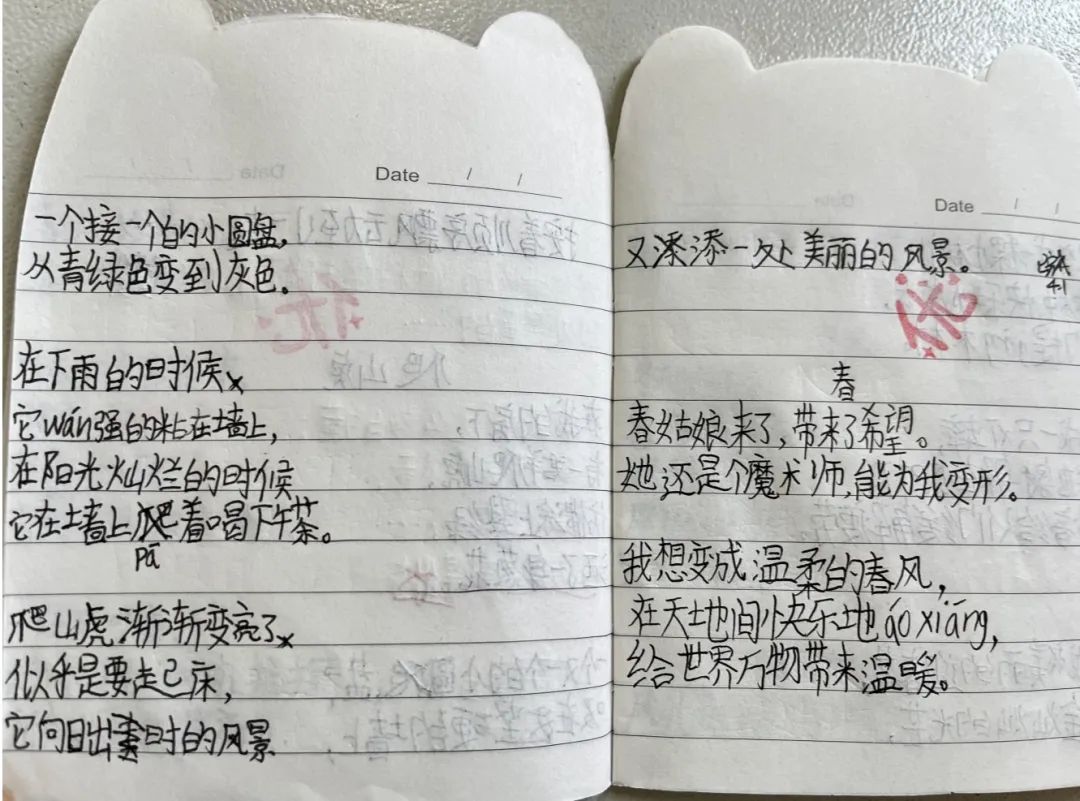 Date / /
一个接一个的小圆盘,
从青绿色变到灰色。
在下雨的时候
它wán强的粘在墙上,
在阳光灿烂的时候
它在墙上爬着喝下午茶。
pā
爬山虎渐渐变亮了
似乎是要起床,
它向日出时的风景
Date / /
又添一处美丽的风景。
4.1
优
春
春姑娘来了,带来了希望。
她还是个魔术师,能为我变形。
我想变成温柔的春风,
在天地间快乐地áo xiáng,
给世界万物带来温暖。